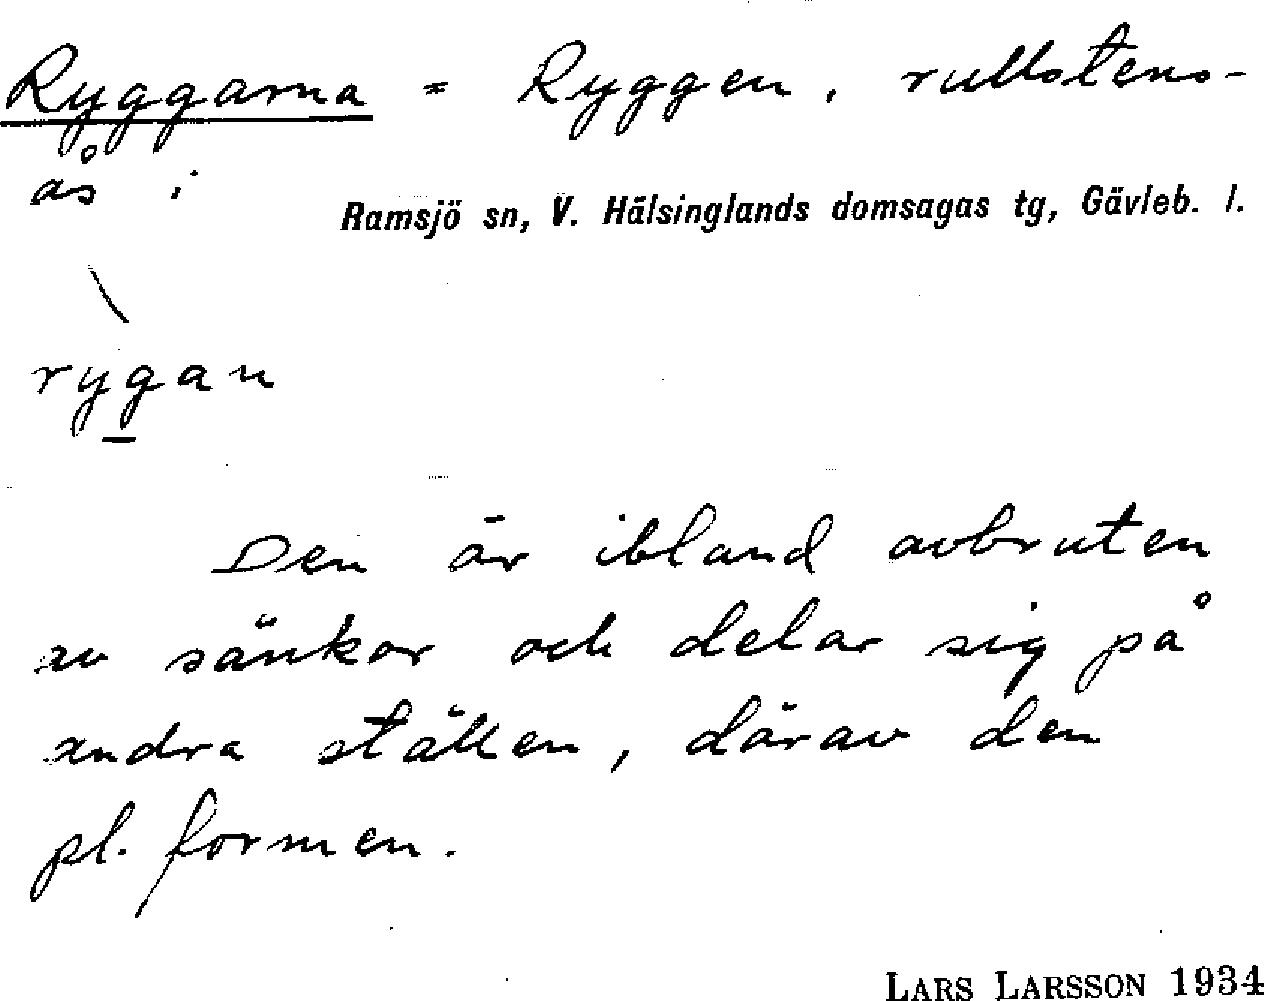 Ryggarna = Ryggen, rullstens-
ås i
Ramsjö sn, V. Hälsinglands domsagas tg, Gävleb. l.
\
rygan
Den är ibland avbruten
av sänkor och delar sig på
andra ställen, därav den
pl. formen.
LARS LARSSON 1934